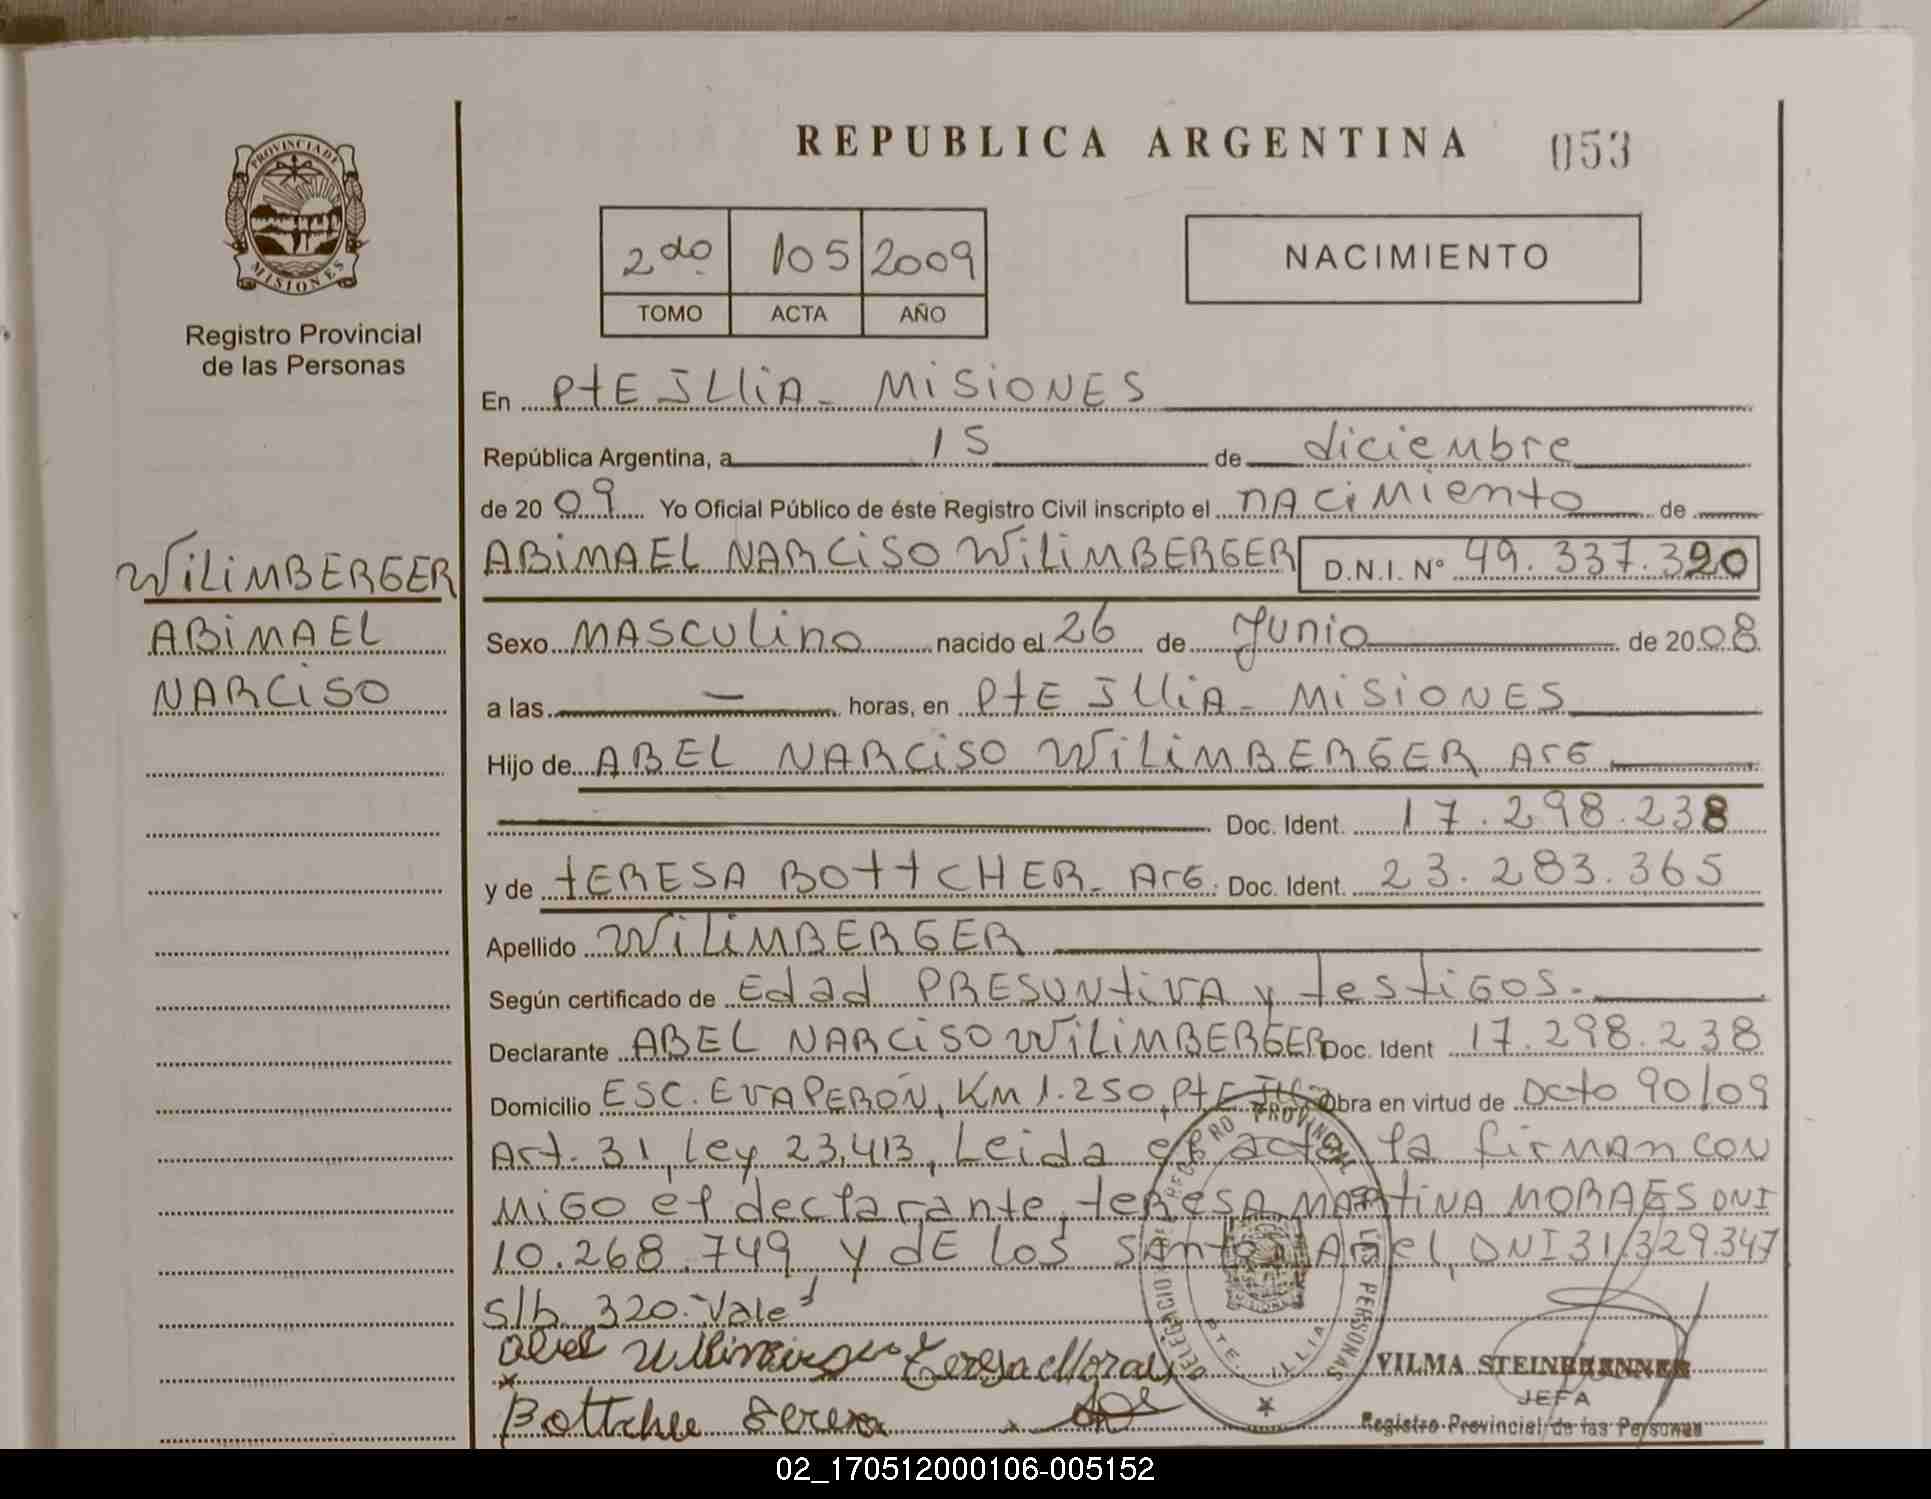 REPUBLICA ARGENTINA
053
PROVINCIA DE
MISIONES
Registro Provincial
de las Personas
2do 105 2009
TOMO ACTA AÑO
NACIMIENTO
En PtE ILLiA - MiSiONES
República Argentina, a 15 de diciembre
de 20 09 Yo Oficial Público de éste Registro Civil inscripto el nACiMiento de
WiLiMBERGER
ABiMAEL
NARCiSO
ABiMAEL NARCiSO WiLiMBERGER D.N.I. Nº 49.337.320
Sexo MASCULino nacido el 26 de Junio de 20 08
a las — horas, en PtE ILLiA - MiSiONES
Hijo de ABEL NARCiSO WiLiMBERGER ArG
Doc. Ident. 17.298.238
y de tERESA BOttCHER - ArG. Doc. Ident. 23.283.365
Apellido WiLiMBERGER
Según certificado de Edad PRESUNtiVA y testiGOS.-
Declarante ABEL NARCiSO WiLiMBERGER Doc. Ident 17.298.238
Domicilio ESC. EVA PERÓN, KM 1.250, PtE Obra en virtud de Dcto 90/09
Art. 31, Ley 23,413, Leida el acta la firman con
MiGO el declarante, teresa MARtiNA MORAES DNI
10.268.749 y dE los Santos Abel, DNI 31.329.347
S/b 320.-Vale
Abel Teresa Moraes
Bottcher Teresa
DELEGACION REGISTRO PROVINCIAL DE LAS PERSONAS
PTE. ILLIA
VILMA STEINBRENNER
JEFA
Registro Provincial de las Personas
02_170512000106-005152